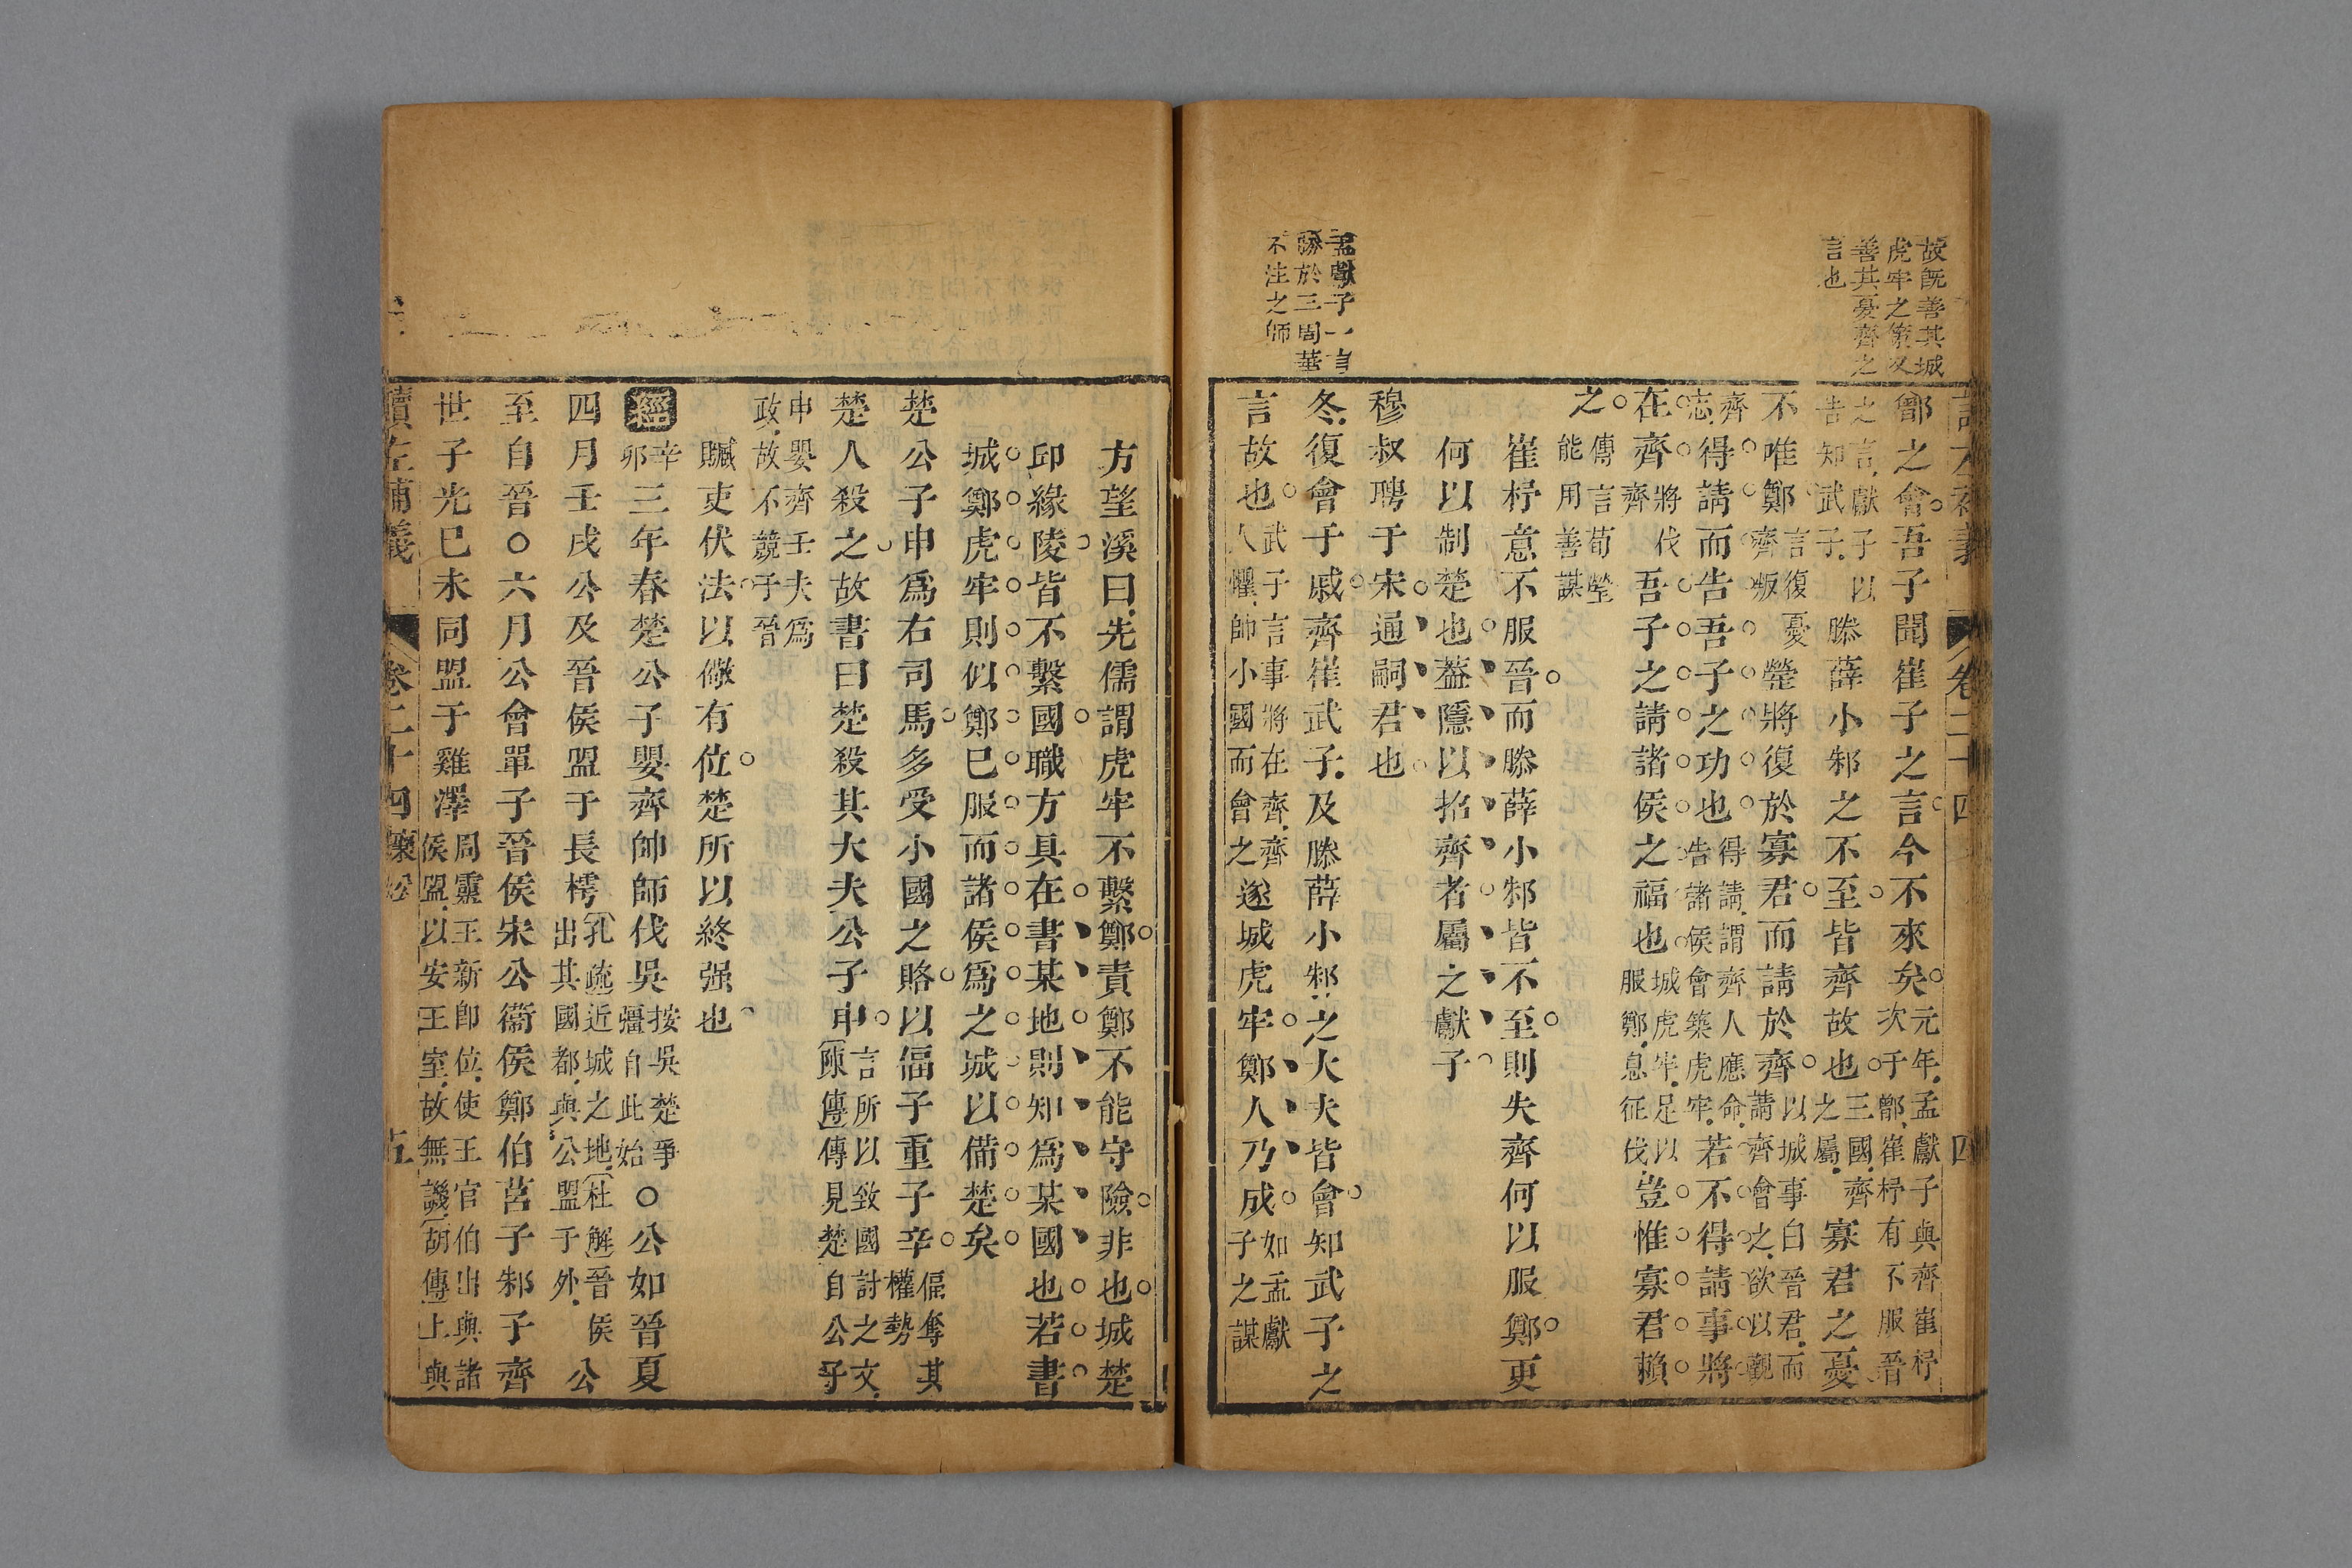 故旣善其城
虎牢之策又
善其憂齊之
言也
孟獻子一言
勝於三周華
不注之師
鄫之會吾子聞崔子之言今不來矣元年孟獻子與齊崔杼次于鄫崔杼有不服晉
之言獻子以告知武子滕薛小邾之不至皆齊故也三國齊之屬寡君之憂
不唯鄭言復憂齊叛罃將復於寡君而請於齊以城事白晉君而請齊會之欲以觀
齊志得請而告吾子之功也得請謂齊人應命告諸侯會築虎牢若不得請事將
在齊將伐齊吾子之請諸侯之福也城虎牢足以服鄭息征伐豈惟寡君賴
之傳言荀罃能用善謀
崔杼意不服晉而滕薛小邾皆不至則失齊何以服鄭更
何以制楚也蓋隱以招齊者屬之獻子
穆叔聘于宋通嗣君也
冬復會于戚齊崔武子及滕薛小邾之大夫皆會知武子之
言故也武子言事將在齊齊人懼帥小國而會之遂城虎牢鄭人乃成如孟獻子之謀
卷二十四
四
方望溪曰先儒謂虎牢不繫鄭責鄭不能守險非也城楚
邱緣陵皆不繫國職方具在書某地則知爲某國也若書
城鄭虎牢則似鄭已服而諸侯爲之城以備楚矣
楚公子申爲右司馬多受小國之賂以偪子重子辛偪奪其權勢
楚人殺之故書曰楚殺其大夫公子申言所以致國討之文陳傳傳見楚自公子
申嬰齊壬夫爲政故不競于晉
贓吏伏法以儆有位楚所以終强也
經辛卯三年春楚公子嬰齊帥師伐吳按吳楚爭彊自此始○公如晉夏
四月壬戌公及晉侯盟于長樗孔疏近城之地杜解晉侯出其國都與公盟于外公
至自晉○六月公會單子晉侯宋公衞侯鄭伯莒子邾子齊
世子光已未同盟于雞澤周靈王新卽位使王官伯出與諸侯盟以安王室故無譏胡傳上與
讀左補義
卷二十四襄公
五